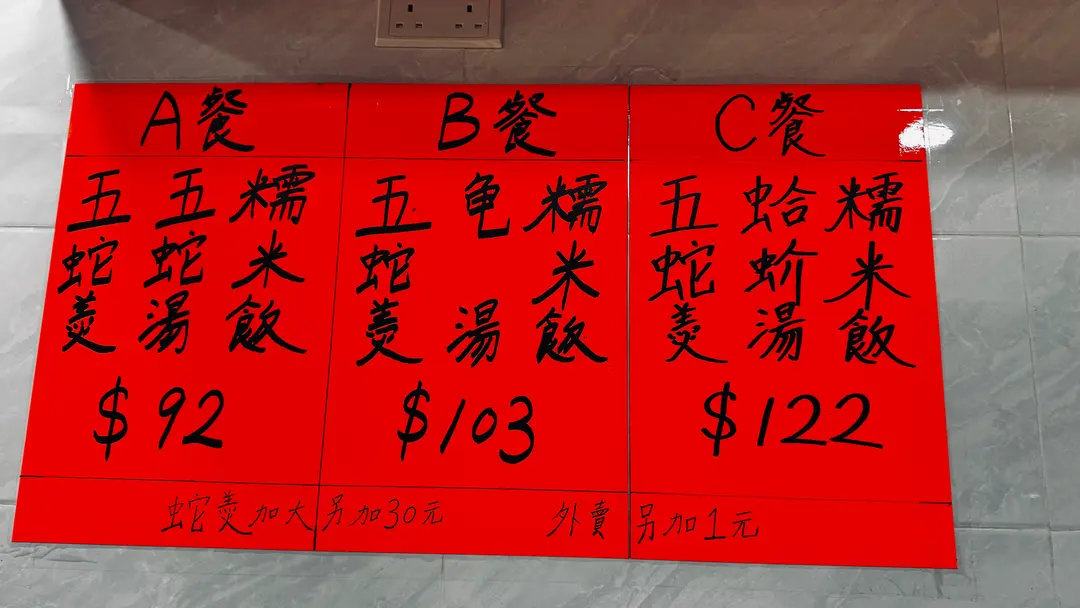 A餐
五蛇羹
五蛇湯
糯米飯
$92
B餐
五蛇羹
龟湯
糯米飯
$103
C餐
五蛇羹
蛤蚧湯
糯米飯
$122
蛇羹加大另加30元
外賣另加1元